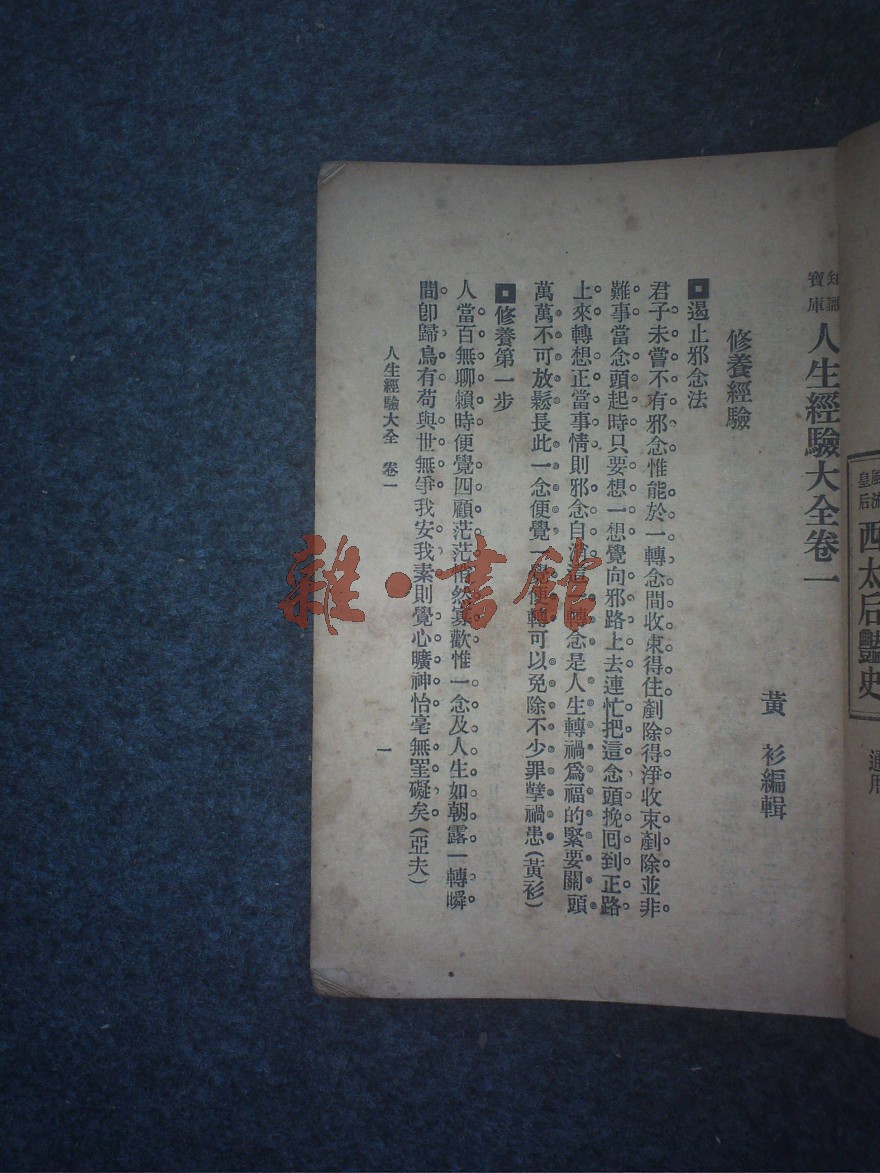 西太后豔史
皇后
通用
知識
寶庫
人生經驗大全卷一
黃衫編輯
修養經驗
遏止邪念法
君子未嘗不有邪念惟能於一轉念間收束得住剷除得淨收束剷除並非
難事當念頭起時只要想一想覺向邪路上去連忙把這念頭挽囘到正路
上來轉想正當事情則邪念自消這一轉念是人生轉禍爲福的緊要關頭
萬萬不可放鬆長此一念便覺一覺便轉可以免除不少罪孽禍患(黃衫)
修養第一步
人當百無聊賴時便覺四顧茫茫悄然寡歡惟一念及人生如朝露一轉瞬
間卽歸烏有苟與世無爭我安我素則覺心曠神怡毫無罣礙矣(亞夫)
人生經驗大全 卷一
一
雜·書館